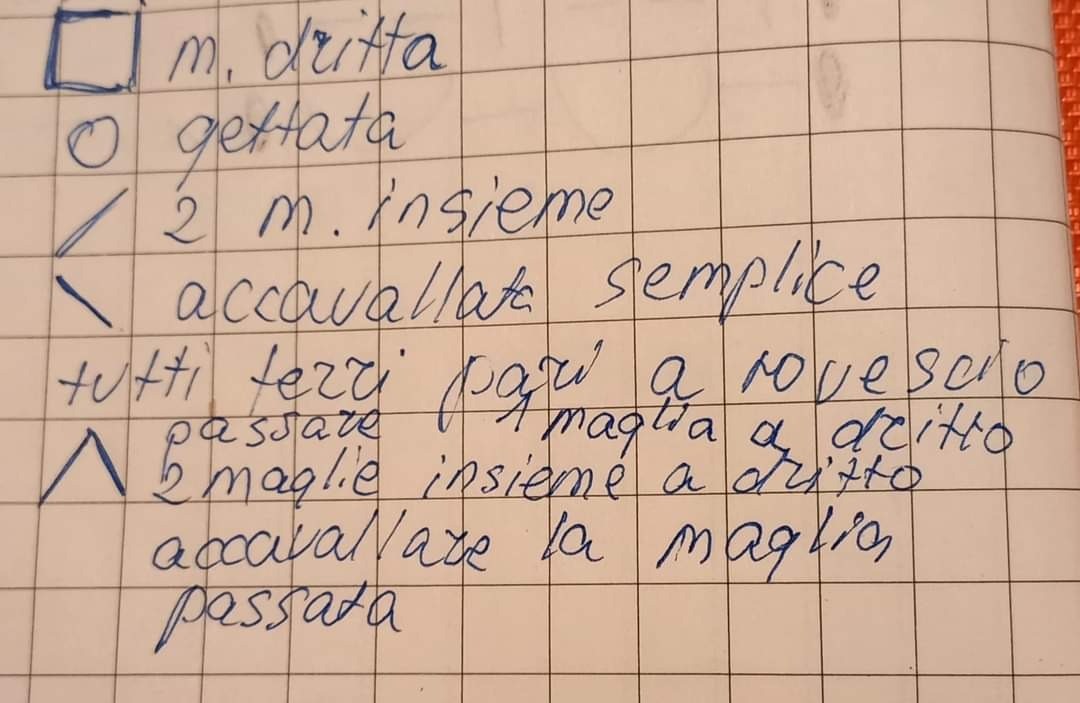 m. dritta
gettata
2 m. insieme
accavallata semplice
tutti ferri pari a rovescio
passare 1 maglia a dritto
2 maglie insieme a dritto
accavallare la maglia
passata